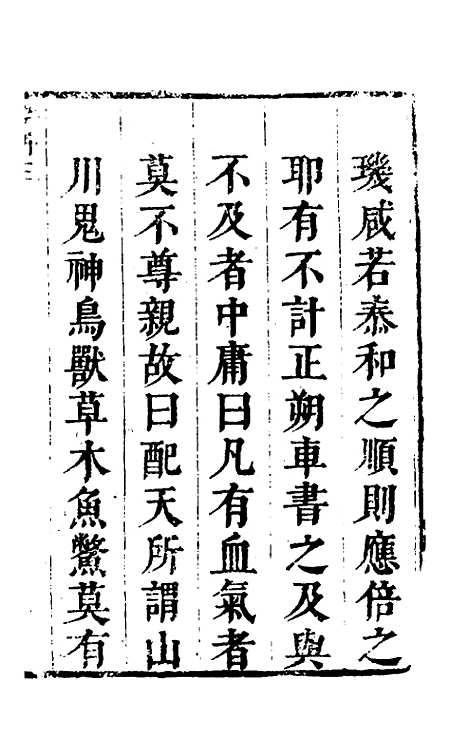 璣咸若泰和之順則應倍之
耶有不計正朔車書之及與
不及者中庸曰凡有血氣者
莫不尊親故曰配天所謂山
川鬼神鳥獸草木魚鱉莫有